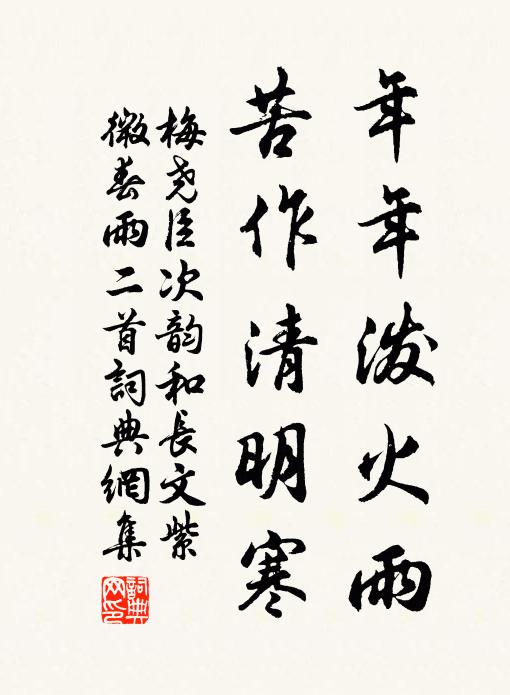 年年泼火雨
苦作清明寒
梅尧臣次韵和長文紫
微春雨二首詞典網集
詞典網印